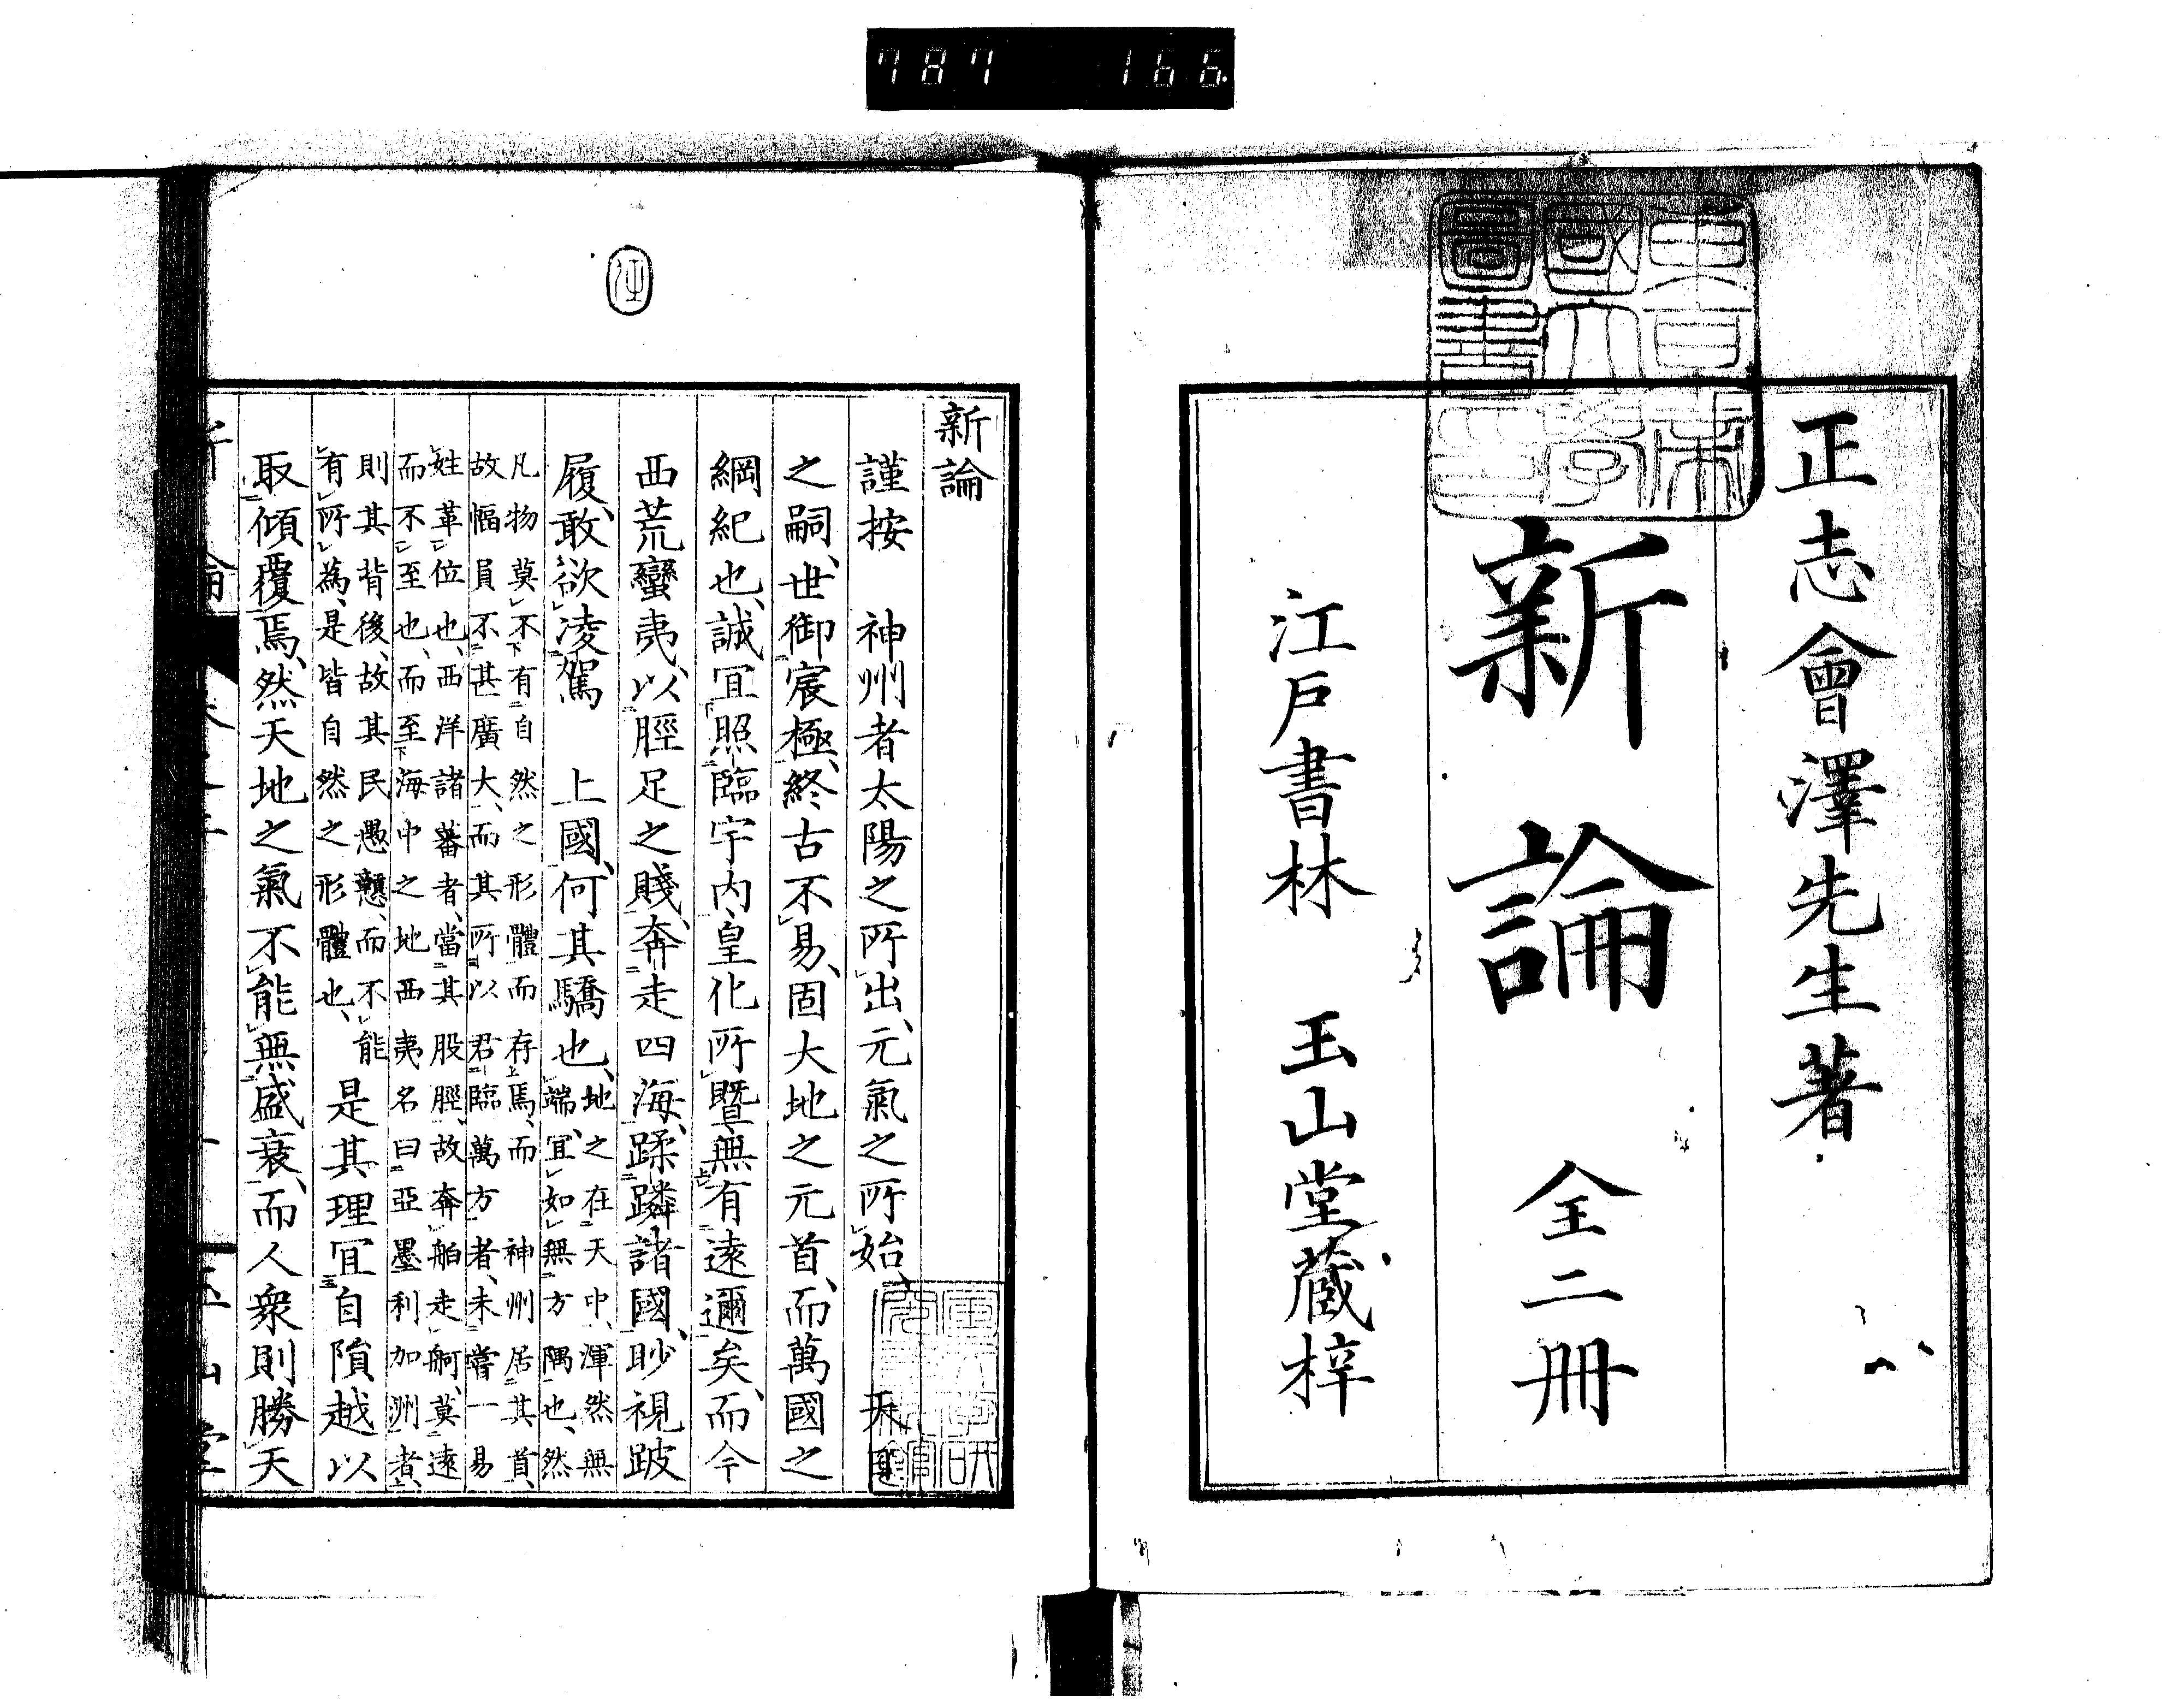 787 166
正志會澤先生著
新論 全二冊
江戸書林 玉山堂藏梓
東京帝
國大學
圖書印
新論
謹按 神州者太陽之所出、元氣之所始、天日
之嗣、世御宸極、終古不易、固大地之元首、而萬國之
綱紀也、誠宜照臨宇內、皇化所曁、無有遠邇矣、而今
西荒蠻夷、以脛足之賤、奔走四海、蹂躪諸國、眇視跛
履、敢欲凌駕 上國、何其驕也、
地之在天中、渾然無
端、宜如無方隅也、然
凡物莫不有自然之形體而存焉、而 神州居其首、
故幅員不甚廣大、而其所以君臨萬方者、未嘗一易
姓革位也、西洋諸蕃者、當其股脛、故奔舶走舸、莫遠
而不至也、而至海中之地西夷名曰亞墨利加洲者、
則其背後、故其民愚戇、而不能
有所為、是皆自然之形體也、
是其理宜自隕越以
取傾覆焉、然天地之氣不能無盛衰、而人衆則勝天